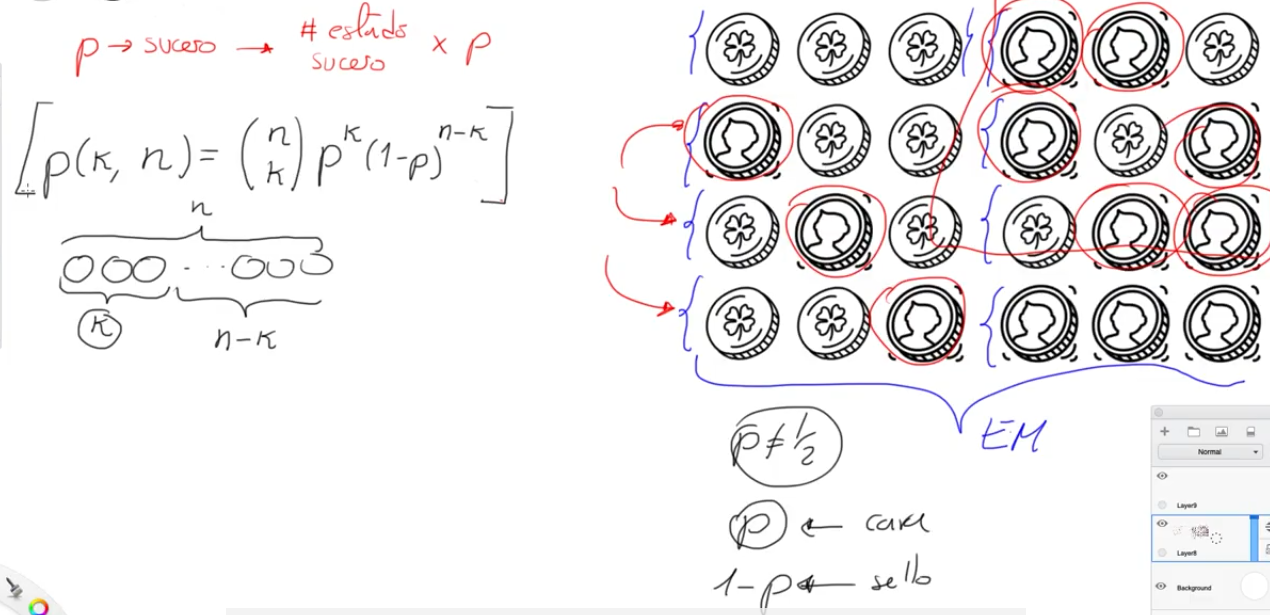 p → suceso → # estado suceso × p
[p(k, n) = (n k) p^k (1-p)^{n-k}]
n
k
n-k
EM
p ≠ 1/2
p ← cara
1-p ← sello
Normal
Layer9
Layer8
Background